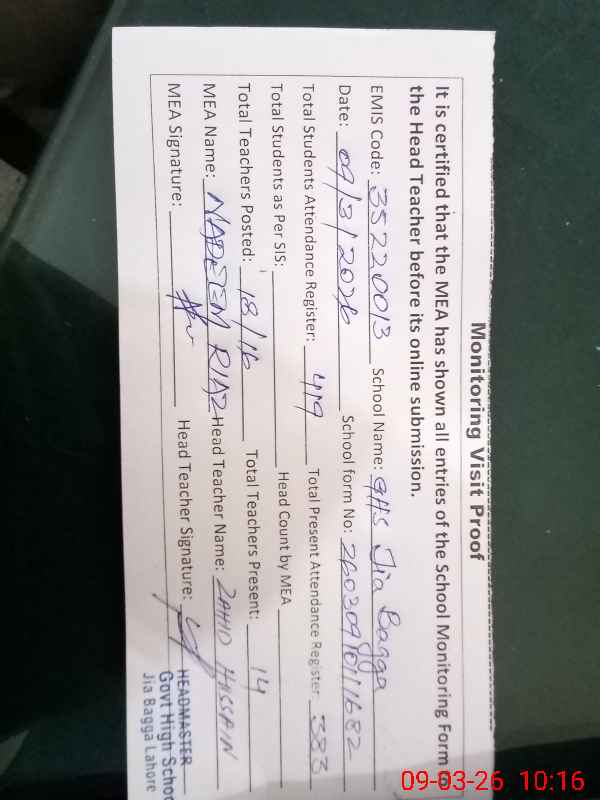 Monitoring Visit Proof
It is certified that the MEA has shown all entries of the School Monitoring Form
the Head Teacher before its online submission.
EMIS Code: 35220013 School Name: GHS Jia Bagga
Date: 09/3/2026 School form No:
Total Students Attendance Register: 419 Total Present Attendance Register 383
Total Students as Per SIS: Head Count by MEA
Total Teachers Posted: 18/16 Total Teachers Present: 14
MEA Name: NADEEM RIAZ Head Teacher Name: ZAHID HASSAIN
MEA Signature: Head Teacher Signature:
HEADMASTER
Govt High Schoo
Jia Bagga Lahore
09-03-26 10:16